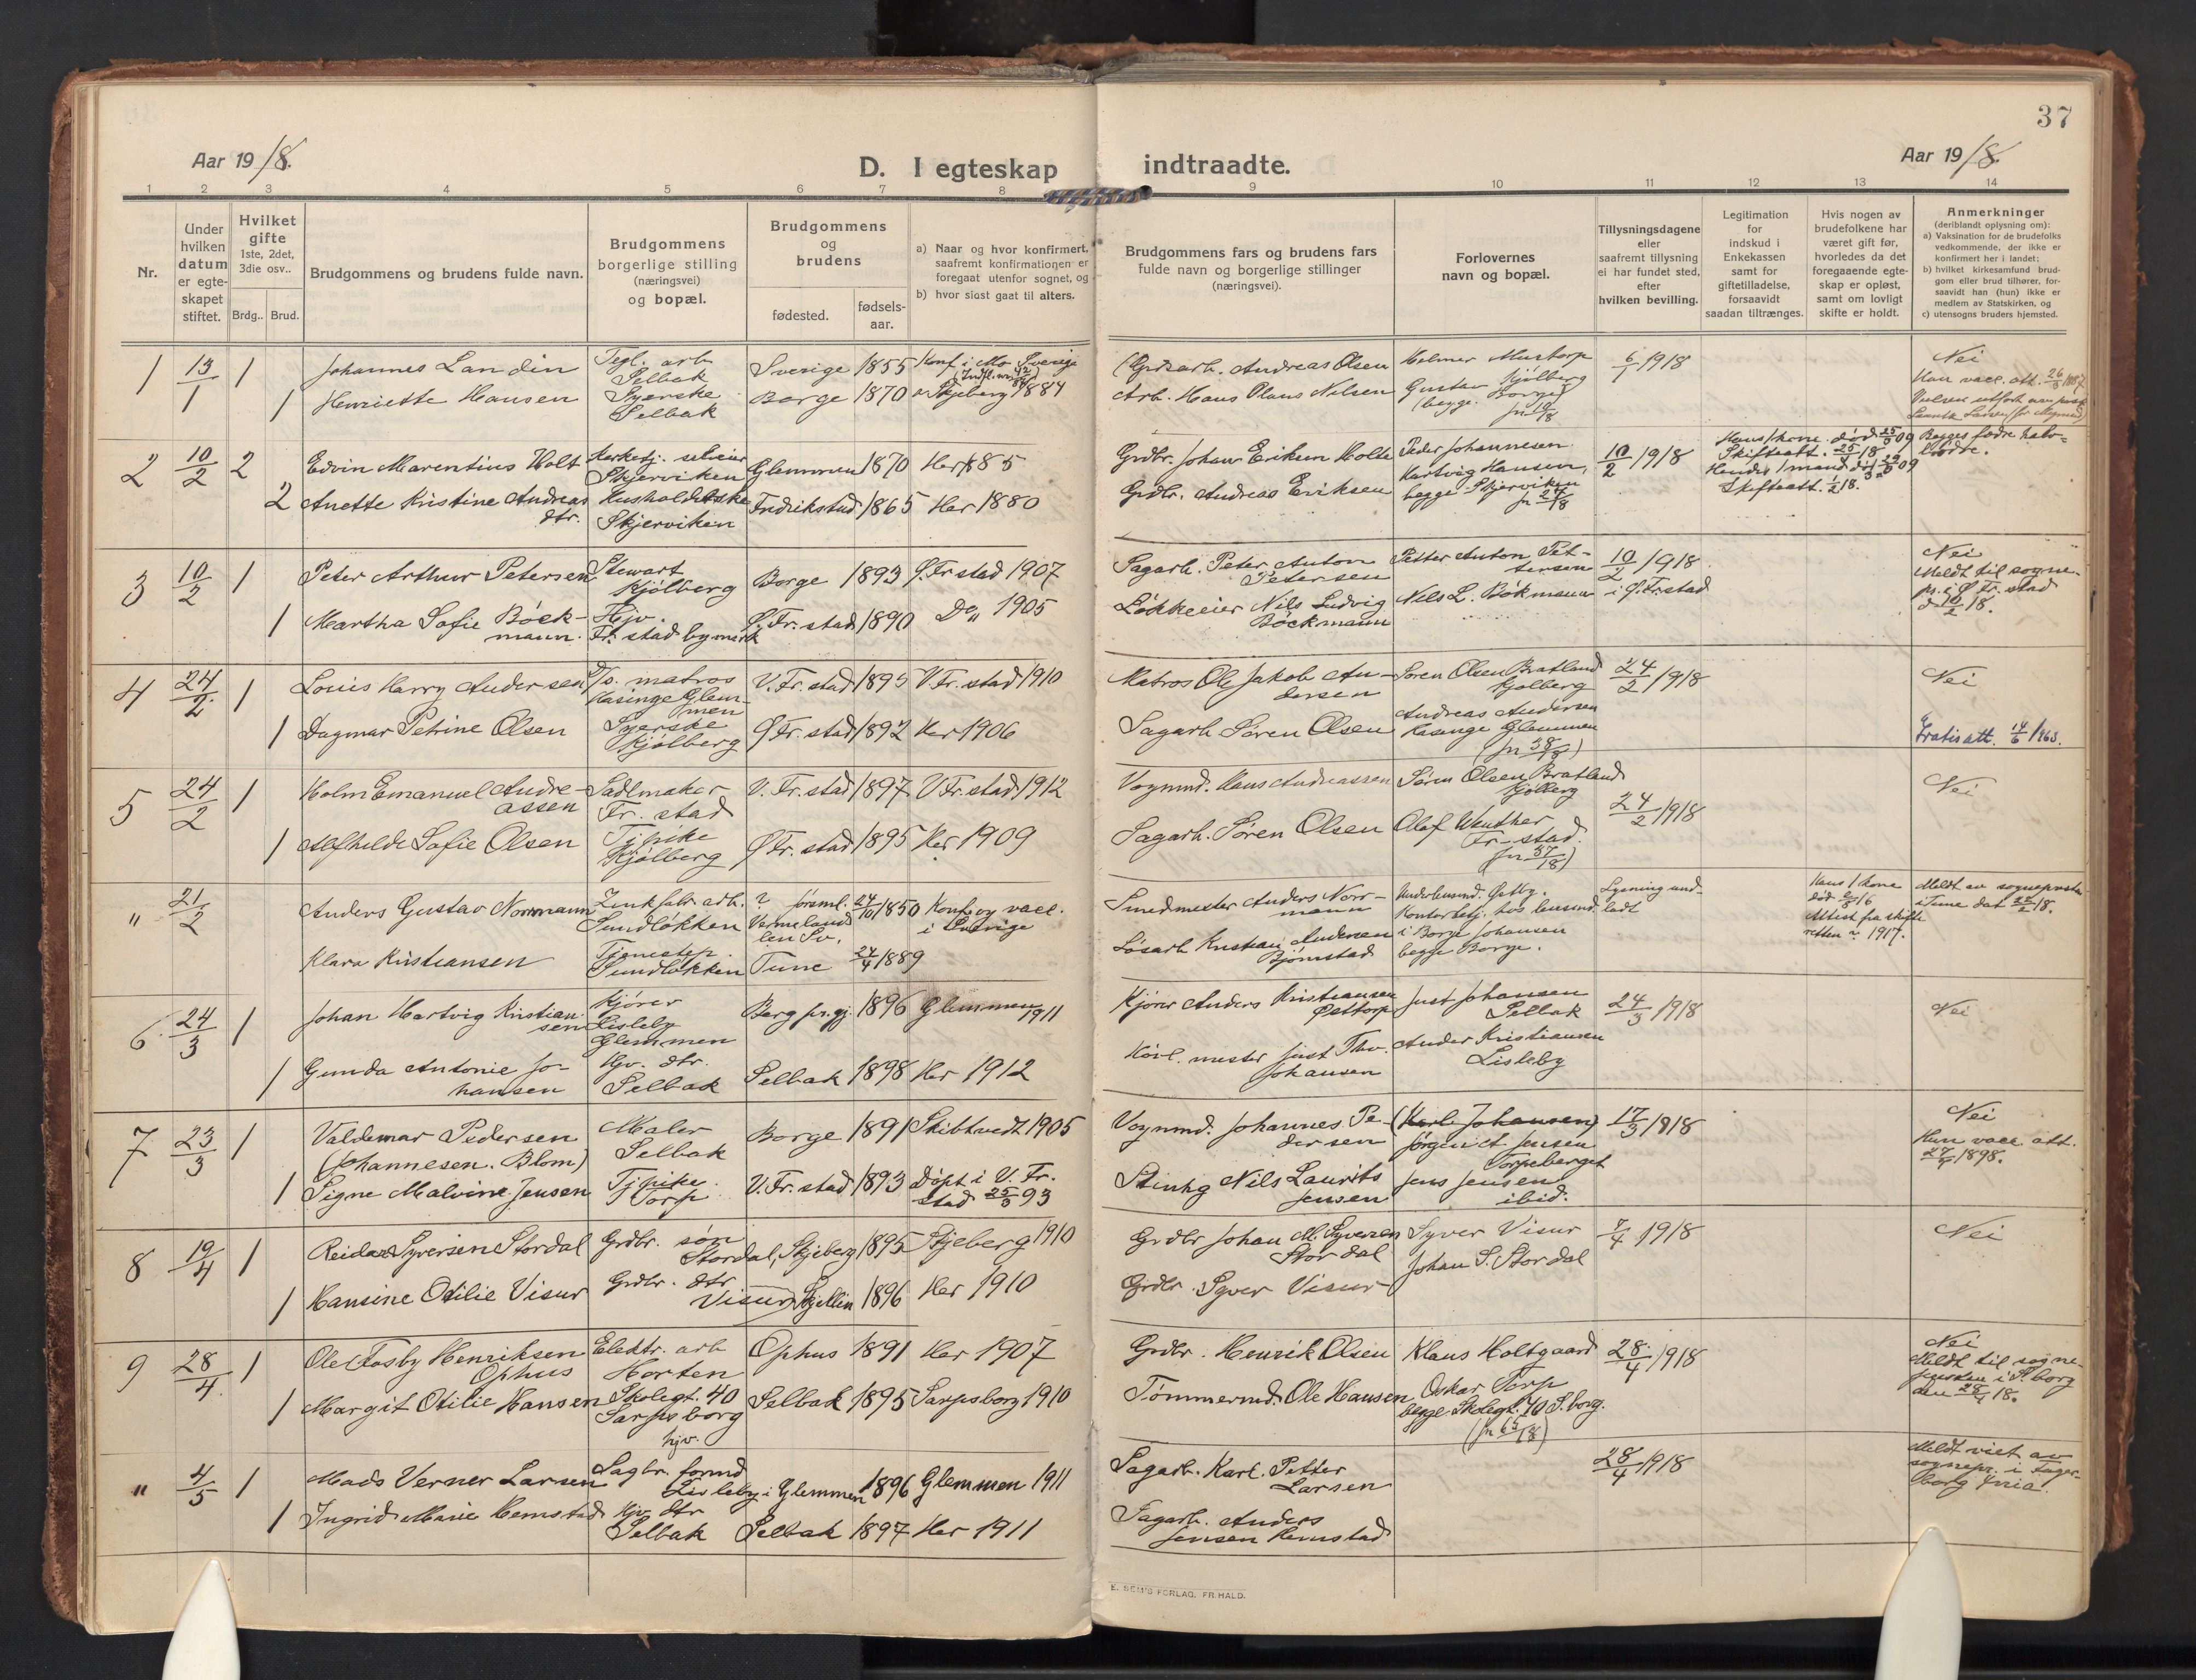 37
Aar 1918.
D. I egteskap indtraadte.
Aar 1918.
1 2 3 4 5 6 7 8 9 10 11 12 13 14
Nr.
Under hvilken datum er egte-skapet stiftet.
Hvilket gifte 1ste, 2det, 3die osv..
Brdg.. Brud.
Brudgommens og brudens fulde navn.
Brudgommens borgerlige stilling (næringsvei) og bopæl.
Brudgommens og brudens
fødested.
fødsels-aar.
a) Naar og hvor konfirmert, saafremt konfirmationen er foregaat utenfor sognet, og
b) hvor sidst gaat til alters.
Brudgommens fars og brudens fars fulde navn og borgerlige stillinger (næringsvei).
Forlovernes navn og bopæl.
Tillysningsdagene eller saafremt tillysning ei har fundet sted, efter hvilken bevilling.
Legitimation for indskud i Enkekassen samt for giftetilladelse, forsaavidt saadan tiltrænges.
Hvis nogen av brudefolkene har været gift før, hvorledes da det foregaaende egte-skap er opløst, samt om lovligt skifte er holdt.
Anmerkninger (deriblandt oplysning om):
a) Vaksination for de brudefolks vedkommende, der ikke er konfirmert her i landet;
b) hvilket kirkesamfund brud-gom eller brud tilhører, for-saavidt han (hun) ikke er medlem av Statskirken, og
c) utensogns bruders hjemsted.
1 13/1 1 Johannes Landin Tegl. arb Selbak Sverige 1855 Konf i Mo Sverige
Grdsarb. Andreas Olsen Helmer Mustorp 6/1 1918 Nei
1 Henriette Hansen Syerske Selbak Borge 1870 Skjeberg 1884
Arb. Hans Olaus Nilsen Gustav Kjølberg (begge Borge)
2 10/2 2 Edvin Marentius Holt Skjerviken Glemmen 1870 Her 1885
Grdbr. Johan Eriksen Holte Peder Johannesen Hartvig Hansen, begge Skjerviken 10/2 1918
2 Anette Kristine Andreas dtr. Skjerviken Fredrikstad 1865 Her 1880
Grdbr. Andreas Eriksen
3 10/2 1 Peter Arthur Petersen Stewart Kjølberg Borge 1893 Ø. Fr stad 1907
Sagarb. Peter Anton Petersen Petter Anton Pet-tersen 10/2 1918 i Ø. Fr.stad
Nei Meldt til sogne-pr. i Ø Fr. stad 10/2 18.
1 Martha Sofie Böck-mann. Hjv. Fr. stad bymark Ø. Fr. stad 1890 Do 1905
Løkkeeier Nils Ludvig Böckmann Nils L. Bökmann
4 24/2 1 Louis Harry Andersen D/s. matros Glem-men V. Fr. stad 1895 V. Fr. stad 1910
Matros Ole Jakob An-dersen Søren Olsen Bratland Kjølberg 24/2 1918 Nei
1 Dagmar Petrine Olsen Syerske Kjølberg Ø Fr. stad 1892 Her 1906
Sagarb. Søren Olsen Andreas Andersen Glemmen
Gratis att. 14/6 1963.
5 24/2 1 Holm Emanuel Andre-assen Sadlmaker Fr. stad V. Fr. stad 1897 V Fr. stad 1912
Vognmd. Hans Andreassen Søren Olsen Bratland Kjølberg 24/2 1918 Nei
1 Alfhilde Sofie Olsen Tj.pike Kjølberg Ø Fr. stad 1895 Her 1909
Sagarb. Søren Olsen Olaf Fr-stad. (fr 37/18)
" 21/2 Anders Gustav Normann Zinkfabr. arb. Sundløkken 1850 Konf. og vacc. i Sverige
Smedmester Anders Norr-mann Lysning und-ladt
Meldt av sogneprsten i Tune dat 22/2 18.
Klara Kristiansen Sundløkken Tune 24/4 1889
Løsarb. Kristian Andersen Bjørnstad i Borge Johansen begge Borge.
6 24/3 1 Johan Hartvig Kristian-sen Kjører Lisleby Glemmen Berg pr.gj. 1896 Glemmen 1911
Kjører Anders Kristiansen Just Johansen Selbak 24/3 1918 Nei
1 Gunda Antonie Jo-hansen Hjv. dtr. Selbak Selbak 1898 Her 1912
Høvl. mester Just Thv. Johansen Anders Kristiansen Lisleby
7 23/3 1 Valdemar Pedersen (Johannesen. Blom) Maler Selbak Borge 1891 Skibtvedt 1905
Vognmd. Johannes Pe-dersen (Karl Johansen) Jensen Torpeberget 17/3 1918
Nei Hun vacc. att. 27/9 1898.
1 Signe Malvine Jensen Tj.pike. Torp V. Fr. stad 1893 Døpt i V. Fr. stad 93
Stinhg Nils Laurits Jensen Jens Jensen ibid.
8 19/4 1 Reidar Syversen Stordal Grdbr. søn Stordal, Skjeberg 1895 Skjeberg 1910
Grdbr Johan M. Syversen Stordal Syver Visur 7/4 1918 Nei
1 Hansine Otilie Visur Grdbr. dtr Visur Skjellin 1896 Her 1910
Grdbr. Syver Visur Johan S. Stordal
9 28/4 1 Ole Fosby Henriksen Ophus Elektr. arb Horten Ophus 1891 Her 1907
Grdbr. Henrik Olsen Klaus Holtgaard 28/4 1918
Nei Meldt til sogne-presten i S.borg den 28/4 18.
1 Margit Otilie Hansen Skolegt. 40 Sarpsborg hjv. Selbak 1895 Sarpsborg 1910
Tømmermd. Ole Hansen Oskar Torp begge Skolegt. 40 S.borg. (fr 65/18)
" 4/5 1 Mads Verner Larsen Sagbr. formd Lisleby i Glemmen 1896 Glemmen 1911
Sagarb. Karl. Petter Larsen 28/4 1918
Meldt viet av sognepr. i Fager-borg Kria.
1 Ingrid Marie Hemstad Hjv. dtr Selbak Selbak 1897 Her 1911
Sagarb. Anders Jensen Hemstad
E. SEM'S FORLAG, FR.HALD.